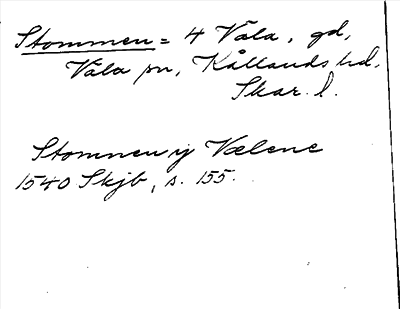 Stommen = 4 Vala, gd,
Vala sn, Kållands hd,
Skar. l.
Stomnen ij Vælene
1540 Skjb, s. 155.